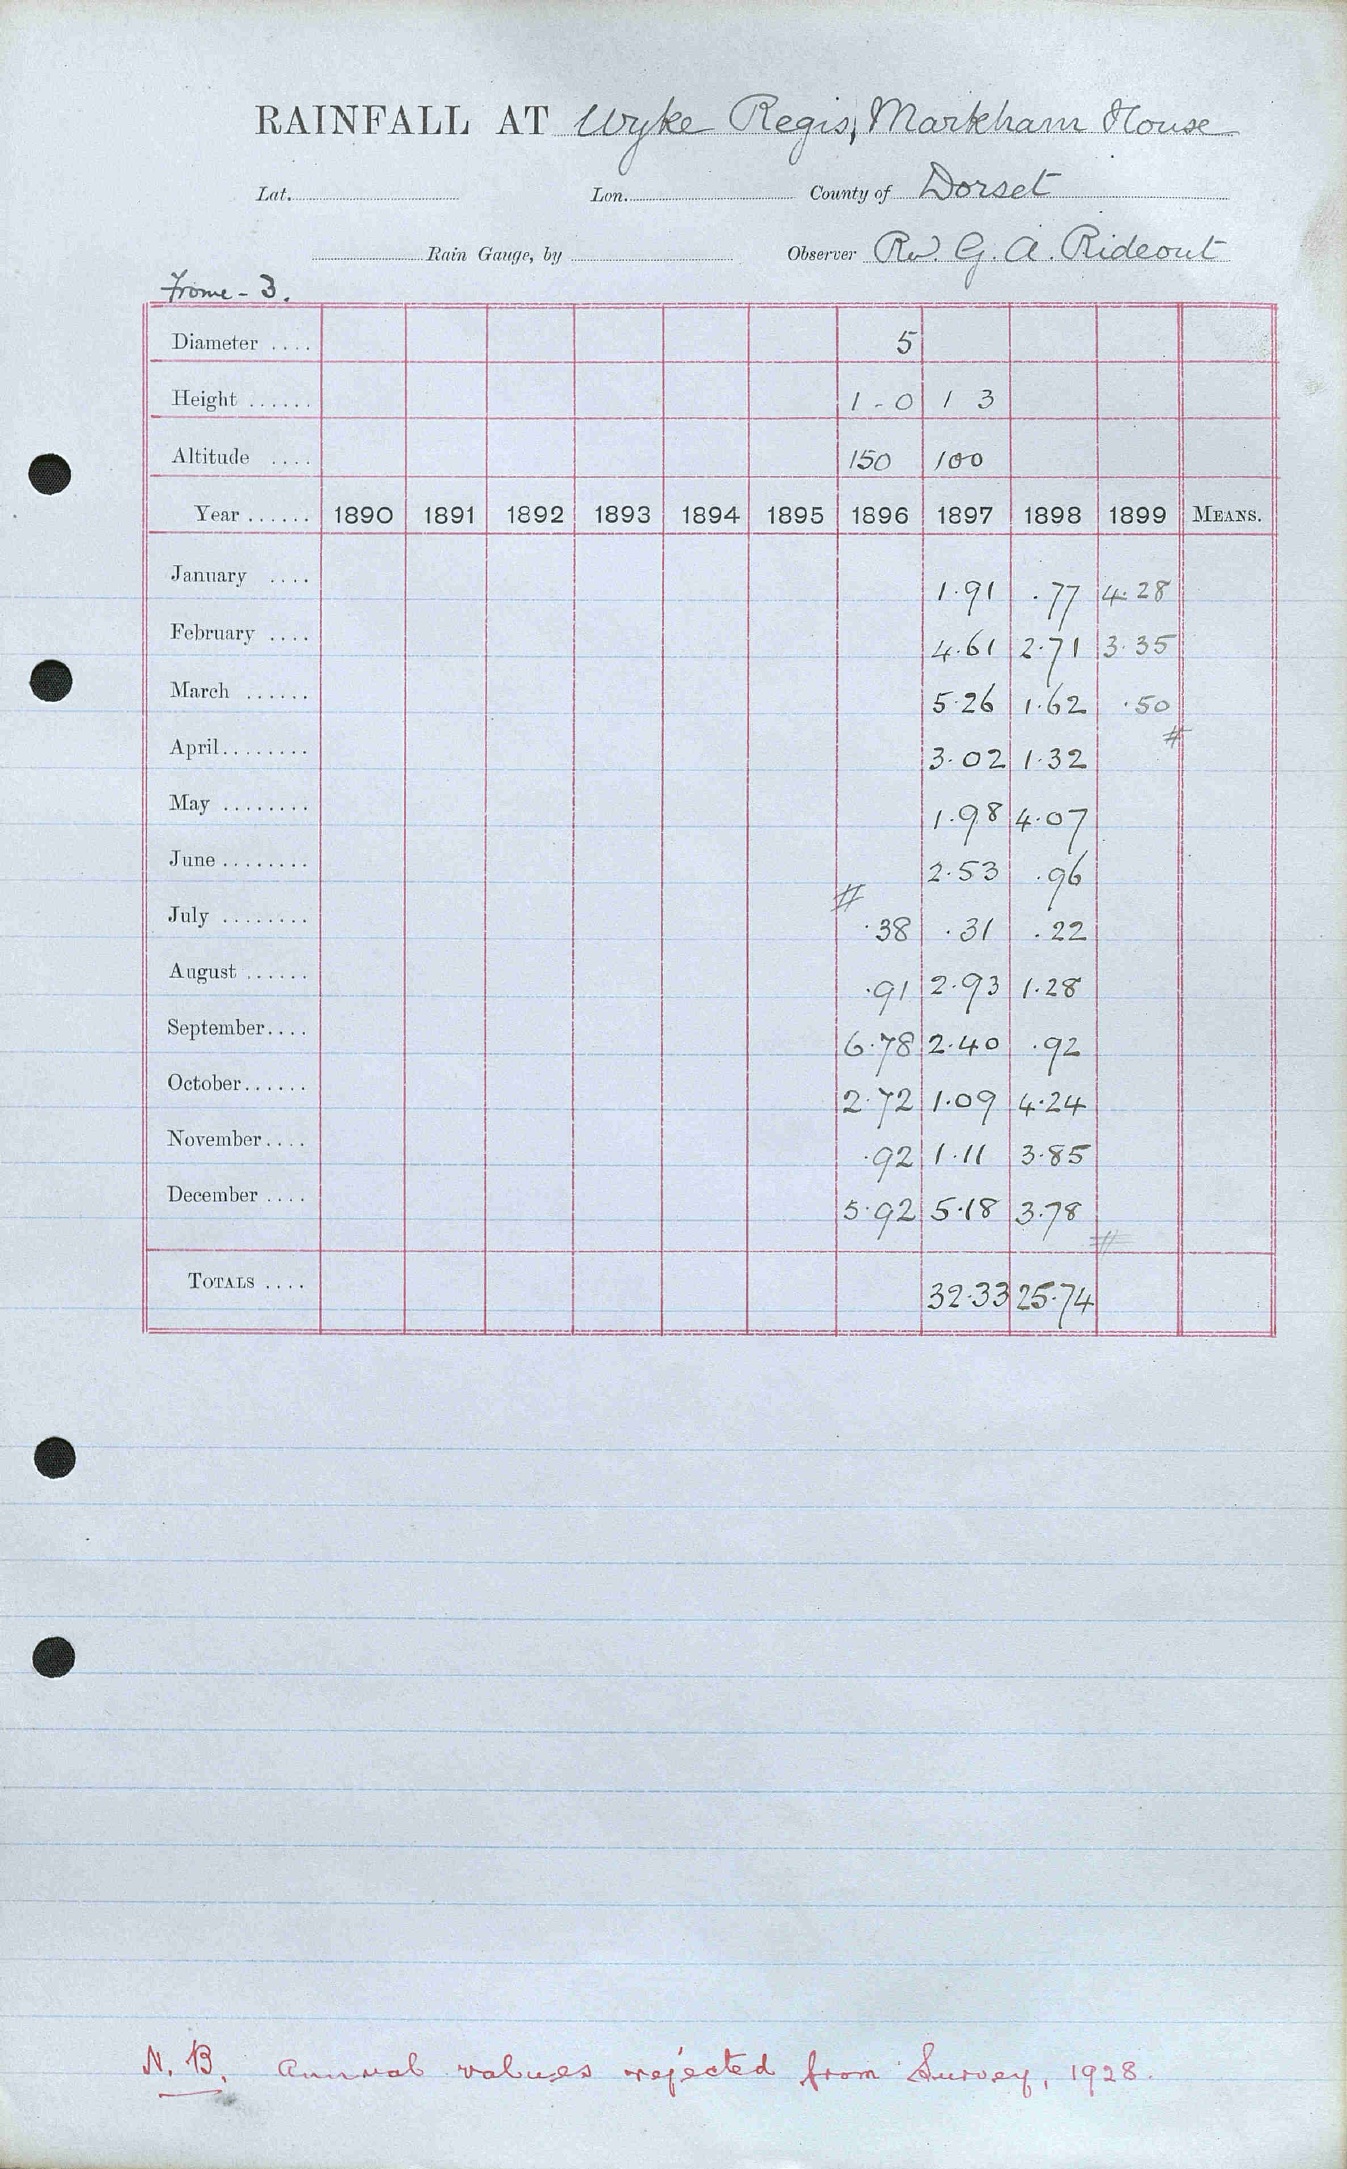 RAINFALL AT Wyke Regis, Markham House
Lat. Lon. County of Dorset
Rain Gauge, by Observer Rev. G. A. Rideout
Frome - 3.
Diameter .... 5
Height ...... 1 - 0 1 3
Altitude .... 150 100
Year ...... 1890 1891 1892 1893 1894 1895 1896 1897 1898 1899 MEANS.
January .... 1.91 .77 4.28
February .... 4.61 2.71 3.35
March ...... 5.26 1.62 .50
April........ 3.02 1.32 #
May ........ 1.98 4.07
June ........ 2.53 .96
July ........ # .38 .31 .22
August ...... .91 2.93 1.28
September.... 6.78 2.40 .92
October...... 2.72 1.09 4.24
November.... .92 1.11 3.85
December .... 5.92 5.18 3.78 #
TOTALS .... 32.33 25.74
N.B. Annual values rejected from Survey, 1928.